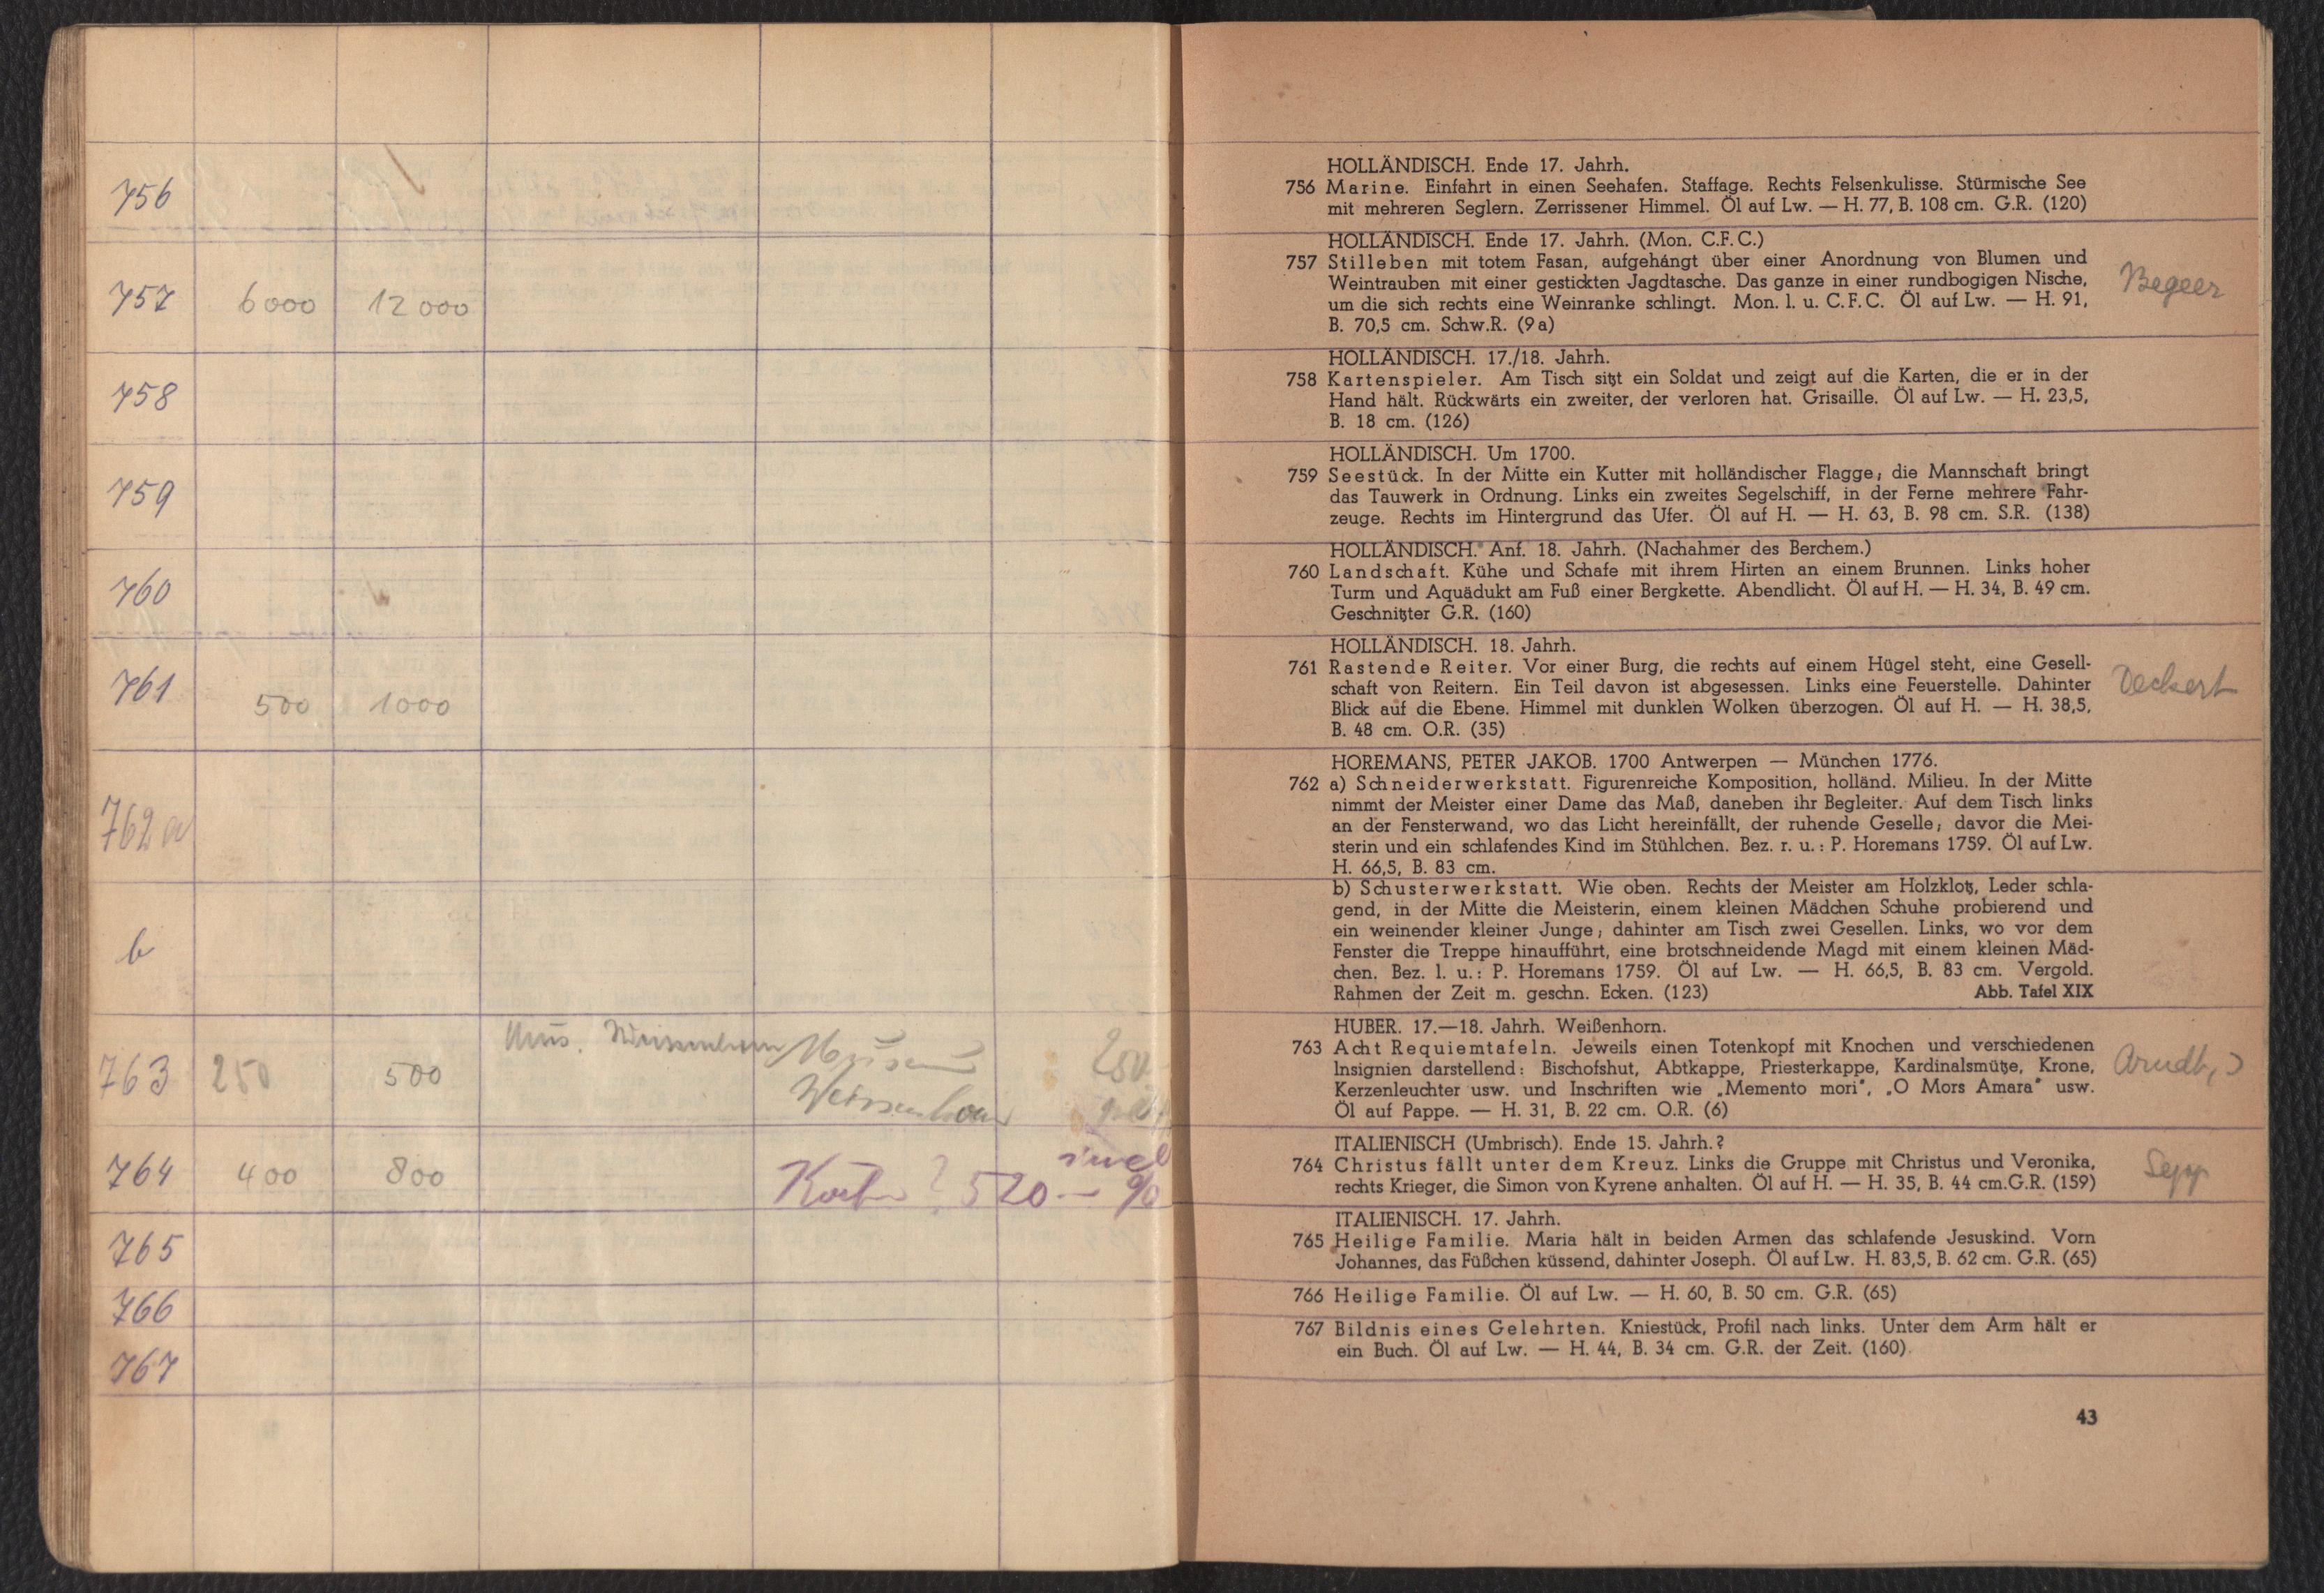 756
757 6000 12 000
758
759
760
761 500 1000
762 a
b
763 250 500 Mus. Weissenhorn Museum 250.
Weissenhorn
764 400 800 520.— %
765
766
767
HOLLÄNDISCH. Ende 17. Jahrh.
756 Marine. Einfahrt in einen Seehafen. Staffage. Rechts Felsenkulisse. Stürmische See
mit mehreren Seglern. Zerrissener Himmel. Öl auf Lw. — H. 77, B. 108 cm. G.R. (120)
HOLLÄNDISCH. Ende 17. Jahrh. (Mon. C.F.C.)
757 Stilleben mit totem Fasan, aufgehängt über einer Anordnung von Blumen und
Weintrauben mit einer gestickten Jagdtasche. Das ganze in einer rundbogigen Nische,
um die sich rechts eine Weinranke schlingt. Mon. l. u. C.F.C. Öl auf Lw. — H. 91,
B. 70,5 cm. Schw.R. (9a)
Begeer
HOLLÄNDISCH. 17./18. Jahrh.
758 Kartenspieler. Am Tisch sitzt ein Soldat und zeigt auf die Karten, die er in der
Hand hält. Rückwärts ein zweiter, der verloren hat. Grisaille. Öl auf Lw. — H. 23,5,
B. 18 cm. (126)
HOLLÄNDISCH. Um 1700.
759 Seestück. In der Mitte ein Kutter mit holländischer Flagge; die Mannschaft bringt
das Tauwerk in Ordnung. Links ein zweites Segelschiff, in der Ferne mehrere Fahr-
zeuge. Rechts im Hintergrund das Ufer. Öl auf H. — H. 63, B. 98 cm. S.R. (138)
HOLLÄNDISCH. Anf. 18. Jahrh. (Nachahmer des Berchem.)
760 Landschaft. Kühe und Schafe mit ihrem Hirten an einem Brunnen. Links hoher
Turm und Aquädukt am Fuß einer Bergkette. Abendlicht. Öl auf H. — H. 34, B. 49 cm.
Geschnitzter G.R. (160)
HOLLÄNDISCH. 18. Jahrh.
761 Rastende Reiter. Vor einer Burg, die rechts auf einem Hügel steht, eine Gesell-
schaft von Reitern. Ein Teil davon ist abgesessen. Links eine Feuerstelle. Dahinter
Blick auf die Ebene. Himmel mit dunklen Wolken überzogen. Öl auf H. — H. 38,5,
B. 48 cm. O.R. (35)
Deckert
HOREMANS, PETER JAKOB. 1700 Antwerpen — München 1776.
762 a) Schneiderwerkstatt. Figurenreiche Komposition, holländ. Milieu. In der Mitte
nimmt der Meister einer Dame das Maß, daneben ihr Begleiter. Auf dem Tisch links
an der Fensterwand, wo das Licht hereinfällt, der ruhende Geselle; davor die Mei-
sterin und ein schlafendes Kind im Stühlchen. Bez. r. u.: P. Horemans 1759. Öl auf Lw.
H. 66,5, B. 83 cm.
b) Schusterwerkstatt. Wie oben. Rechts der Meister am Holzklotz, Leder schla-
gend, in der Mitte die Meisterin, einem kleinen Mädchen Schuhe probierend und
ein weinender kleiner Junge; dahinter am Tisch zwei Gesellen. Links, wo vor dem
Fenster die Treppe hinaufführt, eine brotschneidende Magd mit einem kleinen Mäd-
chen. Bez. l. u.: P. Horemans 1759. Öl auf Lw. — H. 66,5, B. 83 cm. Vergold.
Rahmen der Zeit m. geschn. Ecken. (123) Abb. Tafel XIX
HUBER. 17.—18. Jahrh. Weißenhorn.
763 Acht Requiemtafeln. Jeweils einen Totenkopf mit Knochen und verschiedenen
Insignien darstellend: Bischofshut, Abtkappe, Priesterkappe, Kardinalsmütze, Krone,
Kerzenleuchter usw. und Inschriften wie „Memento mori", „O Mors Amara" usw.
Öl auf Pappe. — H. 31, B. 22 cm. O.R. (6)
Arndt,
ITALIENISCH (Umbrisch). Ende 15. Jahrh.?
764 Christus fällt unter dem Kreuz. Links die Gruppe mit Christus und Veronika,
rechts Krieger, die Simon von Kyrene anhalten. Öl auf H. — H. 35, B. 44 cm.G.R. (159)
Sepp
ITALIENISCH. 17. Jahrh.
765 Heilige Familie. Maria hält in beiden Armen das schlafende Jesuskind. Vorn
Johannes, das Füßchen küssend, dahinter Joseph. Öl auf Lw. H. 83,5, B. 62 cm. G.R. (65)
766 Heilige Familie. Öl auf Lw. — H. 60, B. 50 cm. G.R. (65)
767 Bildnis eines Gelehrten. Kniestück, Profil nach links. Unter dem Arm hält er
ein Buch. Öl auf Lw. — H. 44, B. 34 cm. G.R. der Zeit. (160)
43